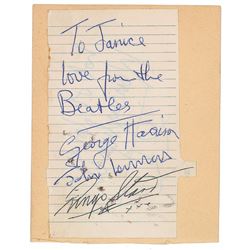 To Janice
love from the
Beatles
George Harrison
John Lennon
Ringo Starr
xxx